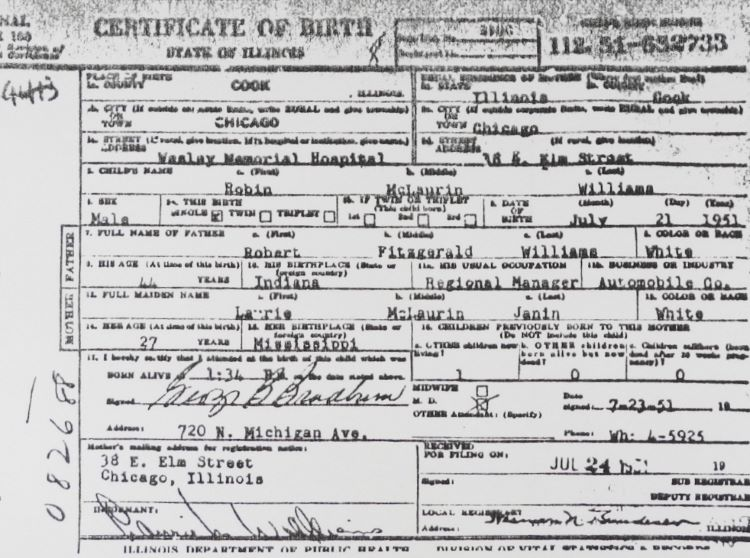 CERTIFICATE OF BIRTH
STATE OF ILLINOIS
112-51-652733
PLACE OF BIRTH
1a. COUNTY COOK , ILLINOIS.
a. STATE Illinois COUNTY Cook
CITY (If outside corporate limits, write RURAL and give township)
OR
TOWN CHICAGO
TOWN Chicago
STREET ADDRESS Wesley Memorial Hospital
STREET ADDRESS 38 E. Elm Street
CHILD'S NAME a. (First) b. (Middle) c. (Last)
Robin McLaurin Williams
SEX Male
THIS BIRTH
SINGLE TWIN TRIPLET
IF TWIN OR TRIPLET
(This child born)
1st 2nd 3rd
DATE OF BIRTH (Month) (Day) (Year)
July 21 1951
FATHER
7. FULL NAME OF FATHER a. (First) b. (Middle) c. (Last)
Robert Fitzgerald Williams
8. COLOR OR RACE
White
9. HIS AGE (At time of this birth)
44 YEARS
10. HIS BIRTHPLACE (State or foreign country)
Indiana
11a. HIS USUAL OCCUPATION
Regional Manager
11b. BUSINESS OR INDUSTRY
Automobile Co.
MOTHER
12. FULL MAIDEN NAME a. (First) b. (Middle) c. (Last)
Laurie McLaurin Janin
13. COLOR OR RACE
White
14. HER AGE (At time of this birth)
27 YEARS
15. HER BIRTHPLACE (State or foreign country)
Mississippi
16. CHILDREN PREVIOUSLY BORN TO THIS MOTHER
(Do NOT include this child)
1 0 0
17. I hereby certify that I attended at the birth of this child which was
BORN ALIVE at 1:34 PM on the date stated above.
Signed
MIDWIFE
M. D.
OTHER Attendant: (Specify)
Date signed: 7-23-51 19
Address: 720 N. Michigan Ave.
Phone: Wh: 4-5925
Mother's mailing address for registration notice:
38 E. Elm Street
Chicago, Illinois
RECEIVED
FOR FILING ON: JUL 24 1951 19
Signed: SUB REGISTRAR
DEPUTY REGISTRAR
INFORMANT:
LOCAL REGISTRAR
Address: ILLINOIS
ILLINOIS DEPARTMENT OF PUBLIC HEALTH
082688